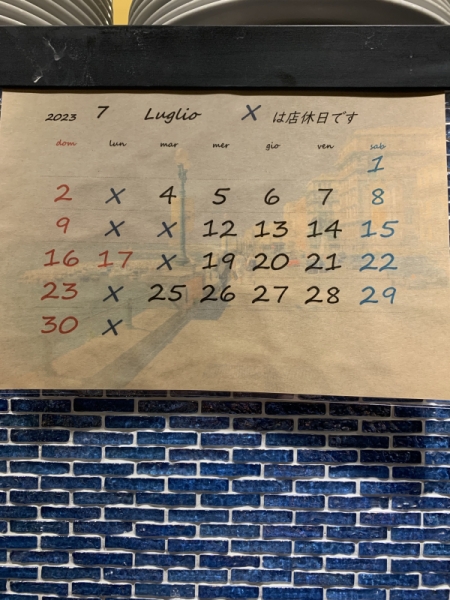 2023 7 Luglio X は店休日です
dom lun mar mer gio ven sab
1
2 X 4 5 6 7 8
9 X X 12 13 14 15
16 17 X 19 20 21 22
23 X 25 26 27 28 29
30 X